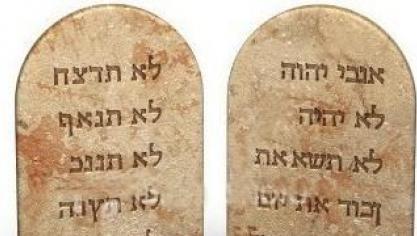 אנכי יהוה
לא יהיה
לא תשא את
זכור את
לא תרצח
לא תנאף
לא תגנב
לא תענה